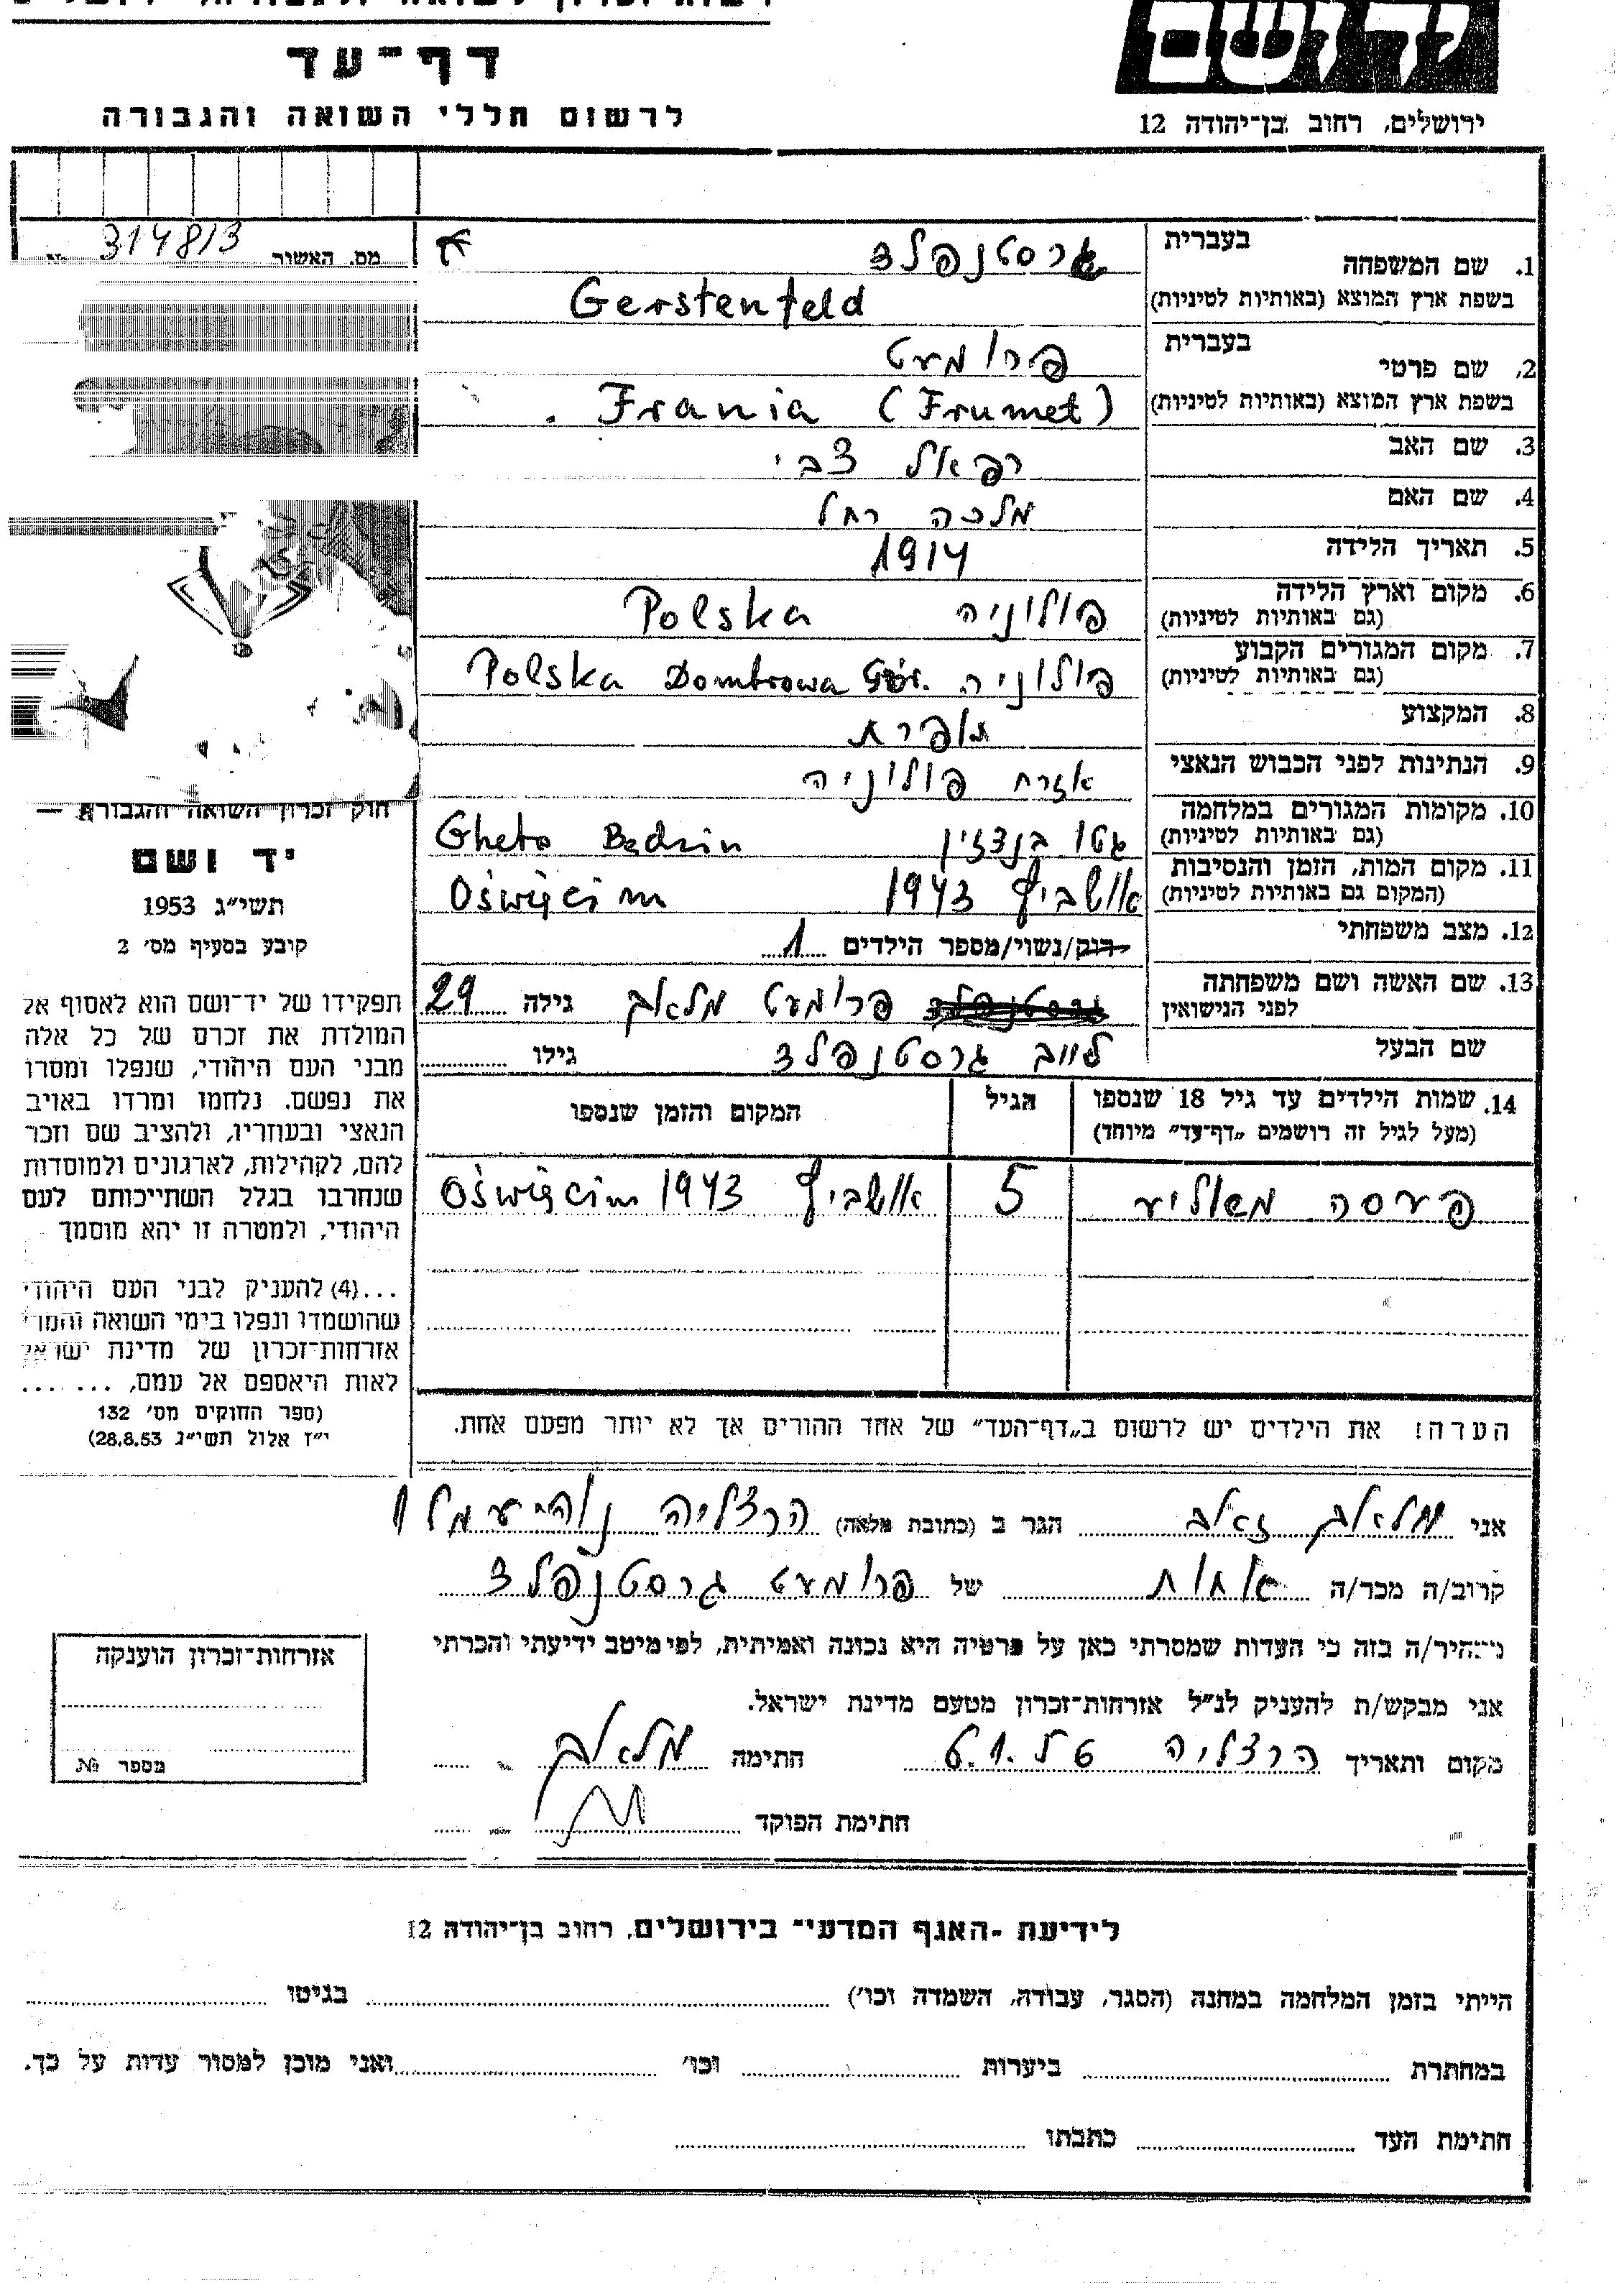 דף־עד
לרשום חללי השואה והגבורה
ירושלים, רחוב בן־יהודה 12
מס. האשור 314813
1. שם המשפחה בעברית גרסטנפלד
בשפת ארץ המוצא (באותיות לטיניות) Gerstenfeld
2. שם פרטי בעברית פרומעט
בשפת ארץ המוצא (באותיות לטיניות) Frania (Frumet)
3. שם האב רפאל צבי
4. שם האם מלכה רחל
5. תאריך הלידה 1914
6. מקום וארץ הלידה (גם באותיות לטיניות) פולוניה Polska
7. מקום המגורים הקבוע (גם באותיות לטיניות) פולוניה Polska Dombrowa Gór.
8. המקצוע תופרת
9. הנתינות לפני הכבוש הנאצי אזרח פולוניה
10. מקומות המגורים במלחמה (גם באותיות לטיניות) גטו בנדזין Gheto Będzin
11. מקום המות, הזמן והנסיבות (המקום גם באותיות לטיניות) אושביץ 1943 Oświęcim
12. מצב משפחתי רווק/נשוי/מספר הילדים 1
13. שם האשה ושם משפחתה לפני הנישואין גרסטנפלד פרומעט מלאב גילה 29
שם הבעל לייב גרסטנפלד גילו
14. שמות הילדים עד גיל 18 שנספו (מעל לגיל זה רושמים "דף־עד" מיוחד) הגיל המקום והזמן שנספו
פעסה 5 אושביץ 1943 Oświęcim
הערה! את הילדים יש לרשום ב"דף־העד" של אחד ההורים אך לא יותר מפעם אחת.
חוק זכרון השואה והגבורה —
יד ושם
תשי"ג 1953
קובע בסעיף מס׳ 2
תפקידו של יד־ושם הוא לאסוף אל
המולדת את זכרם של כל אלה
מבני העם היהודי, שנפלו ומסרו
את נפשם. נלחמו ומרדו באויב
הנאצי ובעוזריו, ולהציב שם וזכר
להם, לקהילות, לארגונים ולמוסדות
שנחרבו בגלל השתייכותם לעם
היהודי, ולמטרה זו יהא מוסמך
...(4) להעניק לבני העם היהודי
שהושמדו ונפלו בימי השואה והמרי
אזרחות־זכרון של מדינת ישראל
לאות היאספם אל עמם, ......
(ספר החוקים מס׳ 132
י"ז אלול תשי"ג 28.8.53)
אני מלאב זאב הגר ב (כתובת מלאה) הרצליה נוה עמל
קרוב/ה מכר/ה אחות של פרומעט גרסטנפלד
מצהיר/ה בזה כי העדות שמסרתי כאן על פרטיה היא נכונה ואמיתית, לפי מיטב ידיעתי והכרתי
אני מבקש/ת להעניק לנ"ל אזרחות־זכרון מטעם מדינת ישראל.
מקום ותאריך הרצליה חתימה מלאב
חתימת הפוקד
אזרחות־זכרון הוענקה
מספר №
לידיעת -האגף המדעי־ בירושלים, רחוב בן־יהודה 12
הייתי בזמן המלחמה במחנה (הסגר, עבודה, השמדה וכו׳) בגיטו
במחתרת ביערות וכו׳ ואני מוכן למסור עדות על כך.
חתימת העד כתבתו